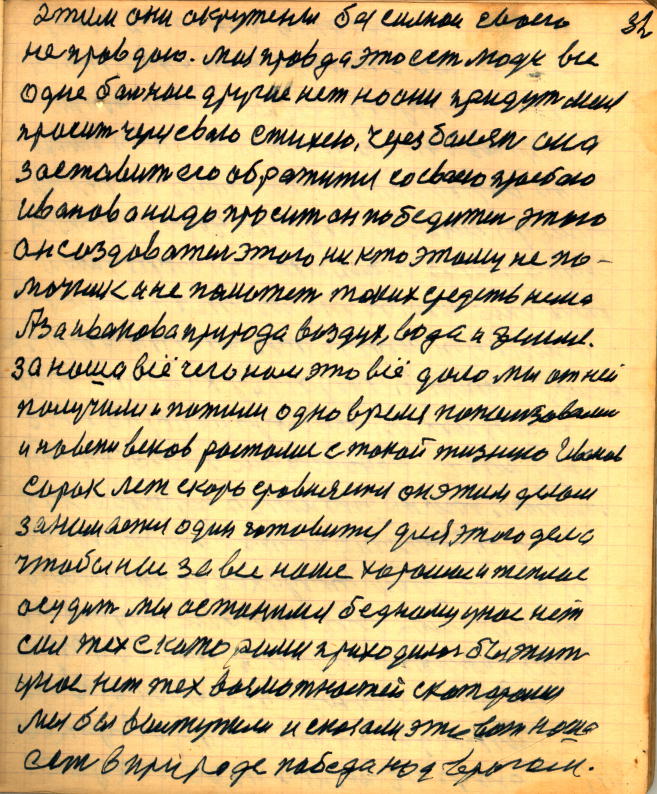 32
этим они окружены бессилием своего
не правдою. Моя правда это ест люди все
одне больные другие нет но они придут меня
просит через свою стихею, через болезн она
заставит его обратится со своею прозбою
Иванова надо просит он победител этого
он создовател этого ни кто этому не по-
мочник и не поможет таких средств нема
А за Иванова природа воздух, вода и земля.
за наша всё чего нам это всё дало мы от ней
получили и пожили одно время попользовали
и на веки веков растали с такой жизнию Иванов
сорок лет скоро сровняется он этим делом
занимается один готовится для этого дела
чтобы нас за все наше хорошое и теплое
осудит мы останимся бедному уное нет
сил тех с которами приходилос бы жит
уное нет тех возможностей с которами
мы бы выступили и сказали это вот наша
ест в природе победа над врагом.